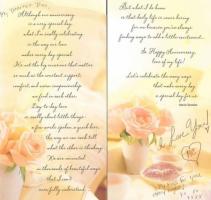 My Dearest
Although an anniversary
is a very special day,
what I'm really celebrating
is the way our love
makes every day special.
It's not the big moments that matter
as much as the constant support,
comfort, and sweet companionship
we find in each other.
Day-to-day love
is really about little things:
a few words spoken, a quick kiss,
the way we can each tell
what the other is thinking.
We are connected
in thousands of beautiful ways
that I can't
even fully understand.
But what I do know
is that daily life is never boring
for me because you're always
finding ways to add a little excitement.
So Happy Anniversary,
love of my life!
Let's celebrate the many ways
that make every day
a special day for us.
I Love You!
for you